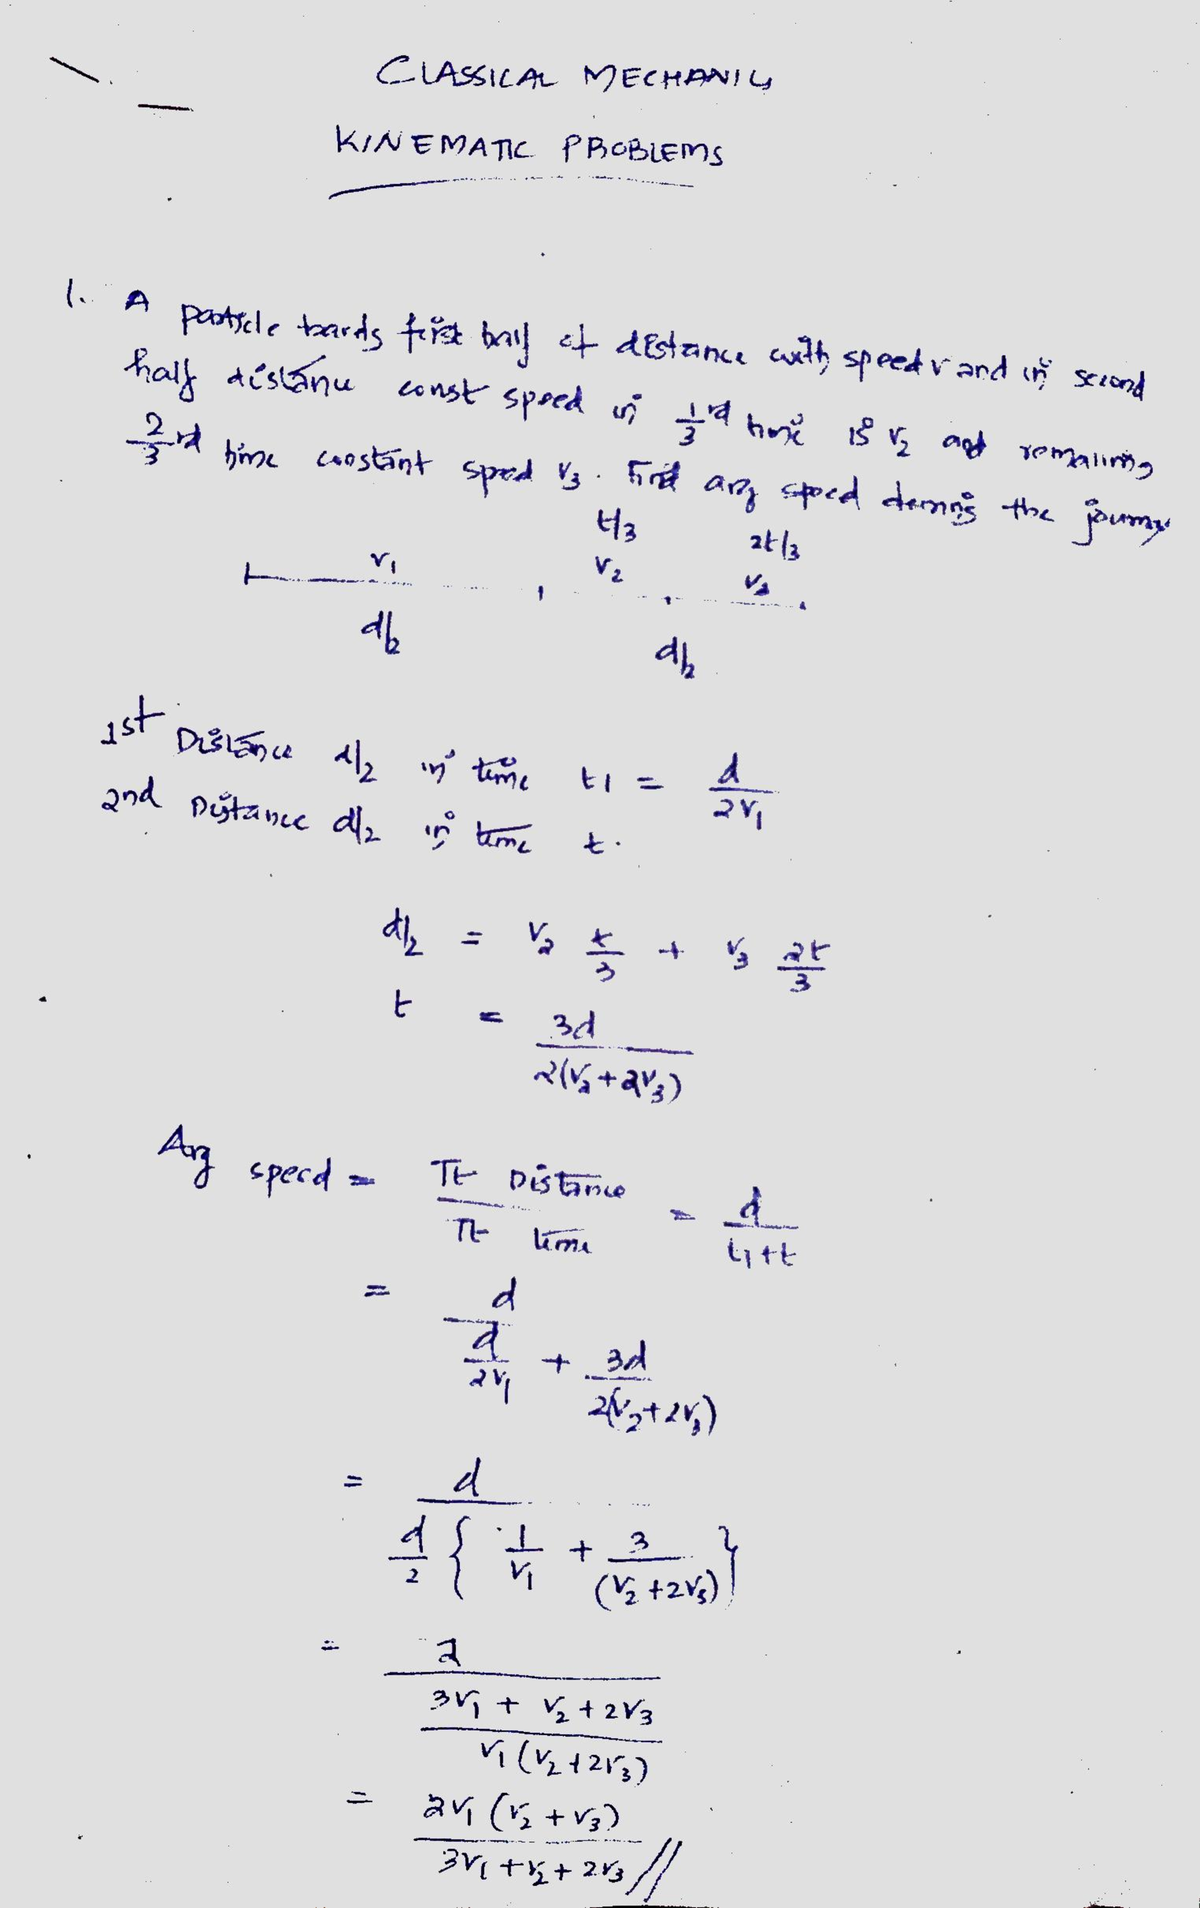 CLASSICAL MECHANICS
KINEMATIC PROBLEMS
1. A particle travels first half of distance with speed v and in second
half distance const speed in 1/3 rd time is v2 and remaining
2/3 rd time constant speed v3. Find avg speed during the journey
t/3 2t/3
v1 v2 v3
d/2 d/2
1st Distance d/2 in time t1 = d/2v1
2nd Distance d/2 in time t.
d/2 = v2 t/3 + v3 2t/3
t = 3d/2(v2+2v3)
Avg speed = Tt Distance/Tt time = d/t1+t
= d/(d/2v1 + 3d/2(v2+2v3))
= d/(d/2 { 1/v1 + 3/(v2+2v3) })
= 2/((3v1 + v2 + 2v3)/v1(v2+2v3))
= 2v1(v2+v3)/3v1+v2+2v3 //